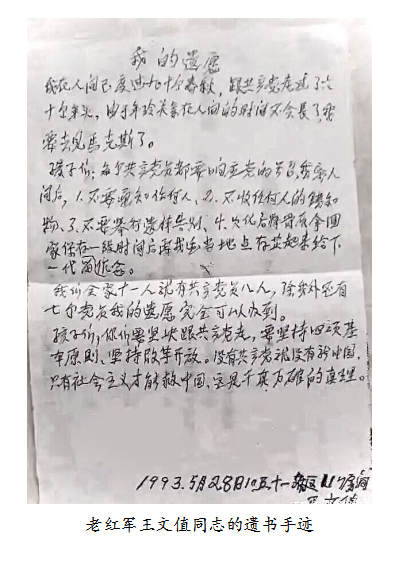 我的遗愿
我在人间已度过九十个春秋，跟共产党走过了六
十个年头，由于年龄关系在人间的时间不会长了，我
要去见马克斯了。
孩子们：每个共产党员都要响应党的号召，我离人
间后，1.不要通知任何人、2.不收任何人的钱和
物、3.不要举行遗体告别、4.火化后将骨灰拿回
家保存一段时间后再找适当地点存放起来给下
一代留纪念。
我们全家十一人就有共产党员八人，除我外还有
七个党员我的遗愿完全可以办到。
孩子们，你们要坚决跟共产党走，要坚持四项基
本原则、坚持改革开放。没有共产党就没有新中国，
只有社会主义才能救中国，这是千真万确的真理。
1993.5月28日
王文值
老红军王文值同志的遗书手迹